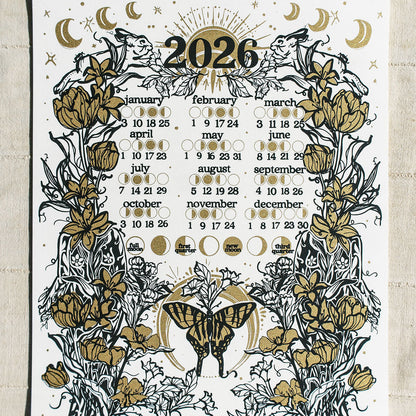 2026
january february march
3 10 18 25 1 9 17 24 3 11 18 25
april may june
1 10 17 23 1 9 16 23 31 8 14 21 29
july august september
7 14 21 29 5 12 19 28 4 11 18 26
october november december
3 10 18 26 1 9 17 24 1 9 17 23 30
full moon first quarter new moon third quarter